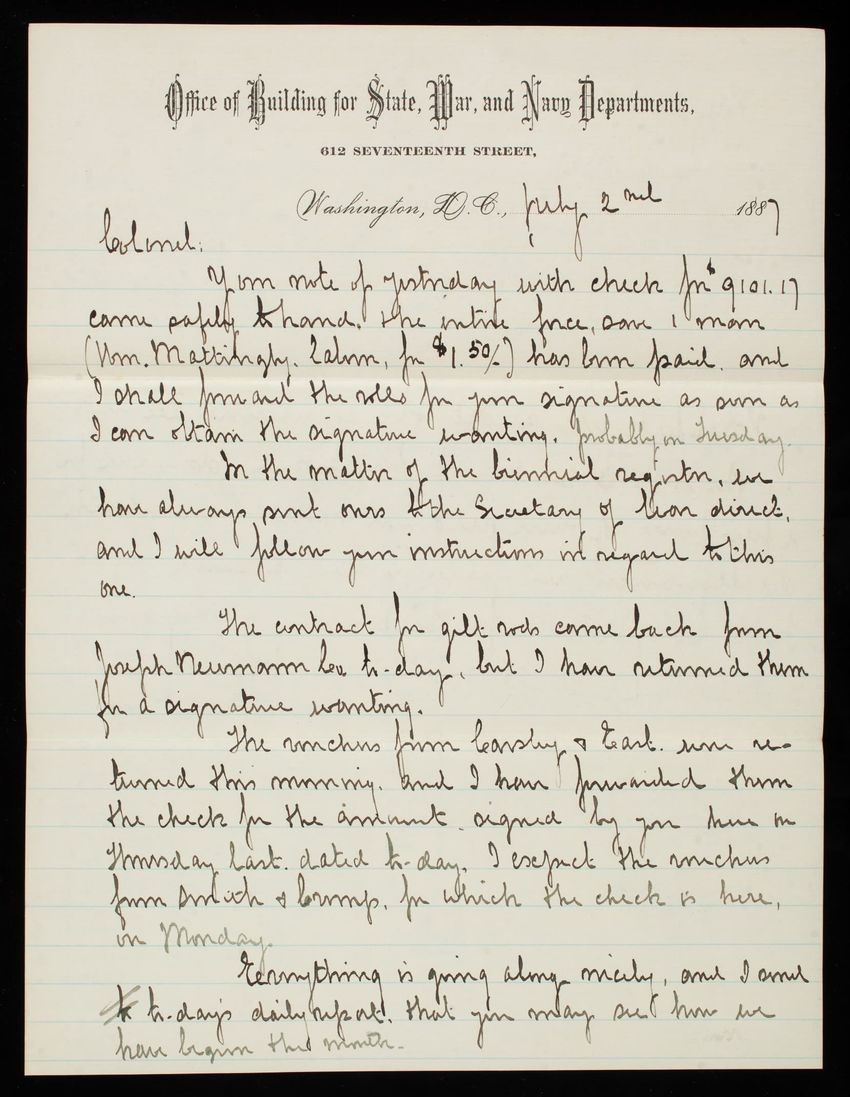 Office of Building for State, War, and Navy Departments,
612 SEVENTEENTH STREET,
Washington, D. C., July 2nd 1887
Colonel:
Your note of yesterday with check for $9101.17
came safely to hand. The entire force, save 1 man
(Wm. Mattingly, Labor, for $1.50/) has been paid, and
I shall forward the rolls for your signature as soon as
I can obtain the signature wanting, probably on Tuesday.
In the matter of the biennial register, we
have always sent ours to the Secretary of War direct,
and I will follow your instructions in regard to this
one.
The contract for gilt rods came back from
Joseph Neumann Co to-day, but I have returned them
for a signature wanting.
The vouchers from Carsley & East. were re-
turned this morning, and I have forwarded them
the check for the amount, signed by you here on
Thursday last, dated to-day. I expect the vouchers
from Smith & Crump, for which the check is here,
on Monday.
Everything is going along nicely, and I send
to-day's daily report, that you may see how we
have begun the month.